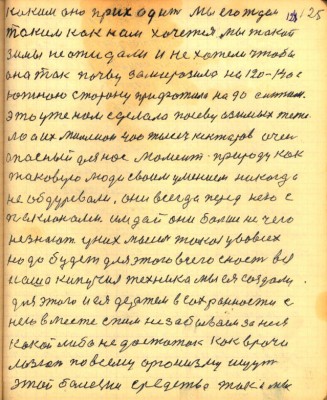 каким оно приходит мы его ждем 125
таким как нам хочется мы такой
зимы не ожидали и не хотели чтобы
она так почву заморозила на 120-140 с
южною сторону продвотило на 90 сантим.
это уже нам сделала посеву озимых
миллион 400 тысяч гектаров очен
опасный для нас момент. природу как
таковую люди своим умением никогда
не обдуревали, они всегда перед нею с
поклонами. им дай они больше не чего
не знают у них мысли такая у во всех
надо будет для этого всего сност вся
наша кипучия техника мы ея создали
для этого и ея держем в сохранности с
нею вместе спим не забываем за нея
какой либо недостаток как врочи
лазиют по всему организму ищут
этой болезни средства так и мы